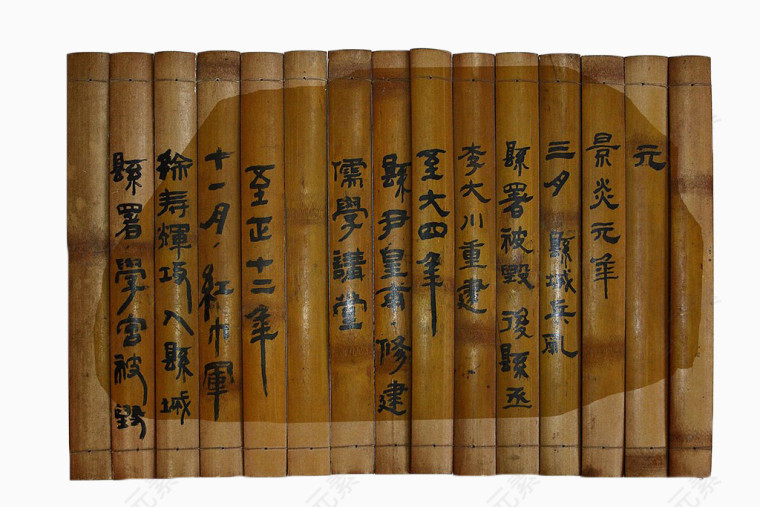 元
景炎元年
三月 縣城兵亂
縣署被毀 後縣丞
李大川重建
至大四年
縣尹皇甫 修建
儒學講堂
至正十二年
十一月 紅巾軍
徐壽輝攻入縣城
縣署 學宮被毀